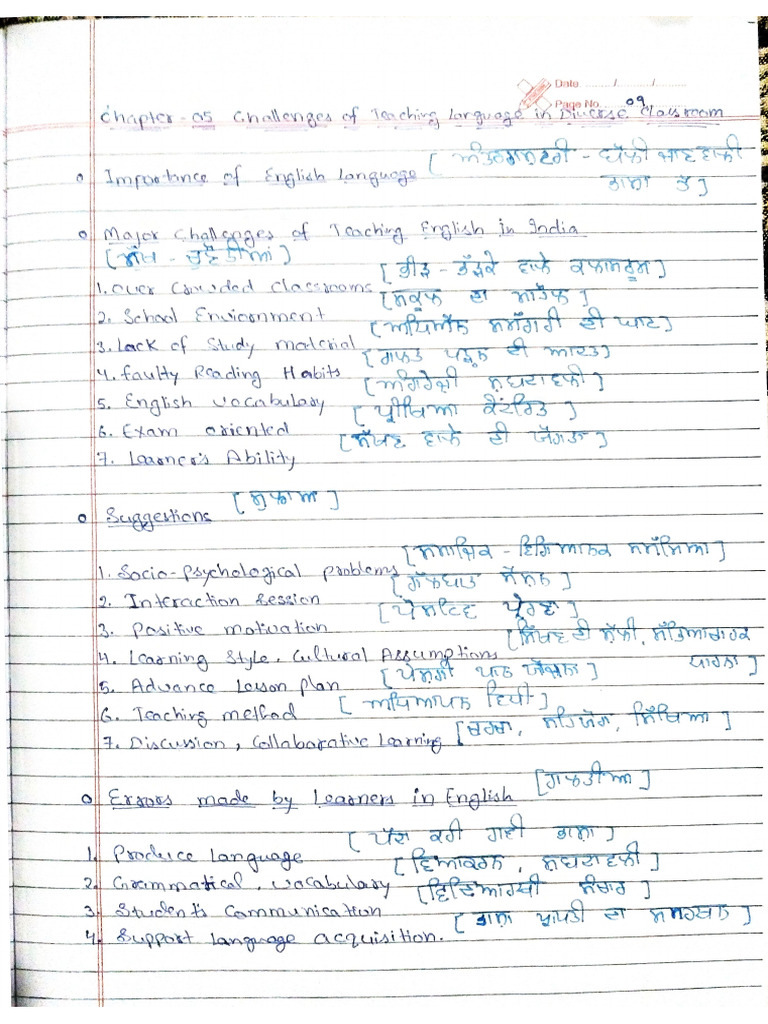 Date ....../....../......
Page No. 09
Chapter-05 Challenges of Teaching Language in Diverse Classroom
o Importance of English Language [ਅੰਤਰਰਾਸ਼ਟਰੀ - ਬੋਲੀ ਜਾਣ ਵਾਲੀ
ਭਾਸ਼ਾ ਤੇ]
o Major Challenges of Teaching English in India
(ਮੁੱਖ - ਚੁਣੌਤੀਆਂ)
[ਭੀੜ - ਭੜੱਕੇ ਵਾਲੇ ਕਲਾਸਰੂਮ]
1. Over Crowded Classrooms
[ਸਕੂਲ ਦਾ ਮਾਹੌਲ]
2. School Enviornment
[ਅਧਿਐਨ ਸਮੱਗਰੀ ਦੀ ਘਾਟ]
3. Lack of Study material
[ਗਲਤ ਪੜ੍ਹਨ ਦੀ ਆਦਤ]
4. Faulty Reading Habits
[ਅੰਗਰੇਜ਼ੀ ਸ਼ਬਦਾਵਲੀ]
5. English Vocabulary
[ਪ੍ਰੀਖਿਆ ਕੇਂਦਰਿਤ]
6. Exam oriented
[ਸਿੱਖਣ ਵਾਲੇ ਦੀ ਯੋਗਤਾ]
7. Learner's Ability
[ਸੁਝਾਅ]
o Suggestions
[ਸਮਾਜਿਕ - ਵਿਗਿਆਨਕ ਸਮੱਸਿਆ]
1. Socio-Psychological problems
[ਗੱਲਬਾਤ ਸੈਸ਼ਨ]
2. Interaction Session
[ਪੋਜ਼ਟਿਵ ਪ੍ਰੇਰਣਾ]
3. Positive motivation
[ਸਿੱਖਣ ਦੀ ਸ਼ੈਲੀ, ਸੱਭਿਆਚਾਰਕ
4. Learning Style, Cultural Assumptions
ਧਾਰਨਾ]
[ਪੇਸ਼ਗੀ ਪਾਠ ਯੋਜਨਾ]
5. Advance Lesson plan
[ਅਧਿਆਪਨ ਵਿਧੀ]
6. Teaching method
[ਚਰਚਾ, ਸਹਿਯੋਗ, ਸਿੱਖਿਆ]
7. Discussion, Collabarative Learning
[ਗਲਤੀਆਂ]
o Errors made by Learners in English
[ਪੈਦਾ ਕਰੀ ਗਈ ਭਾਸ਼ਾ]
1. Produce Language
[ਵਿਆਕਰਨ, ਸ਼ਬਦਾਵਲੀ]
2. Grammatical, Vocabulary
[ਵਿਦਿਆਰਥੀ ਸੰਚਾਰ]
3. Student's Communication
[ਭਾਸ਼ਾ ਪ੍ਰਾਪਤੀ ਦਾ ਸਮਰਥਨ]
4. Support Language acquisition.